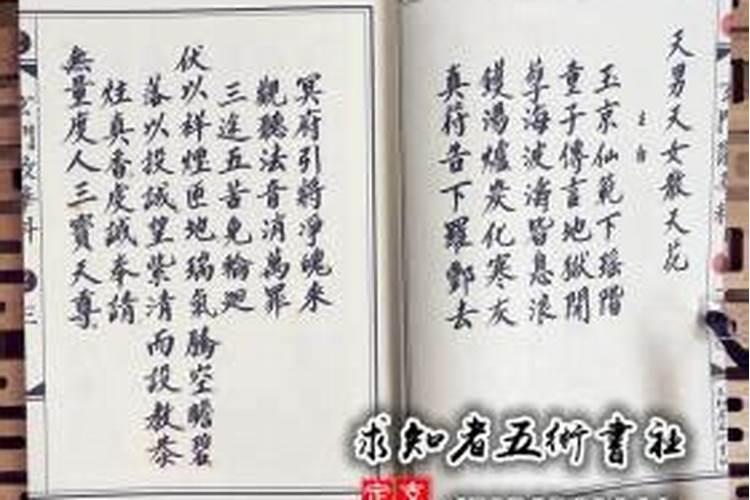 天男天女散天花
玉京仙範下瑶階
童子傳言地獄開
孽海波濤皆息浪
鑊湯爐炭化寒灰
真符告下羅酆去
冥府引將凈魄來
觀聽法音消萬罪
三途五苦免輪廻
伏以祥煙匝地瑞氣騰空瞻碧
落以投誠望紫清而設教恭
炷真香虔誠奉請
無量度人三寶天尊
求知者五術書社